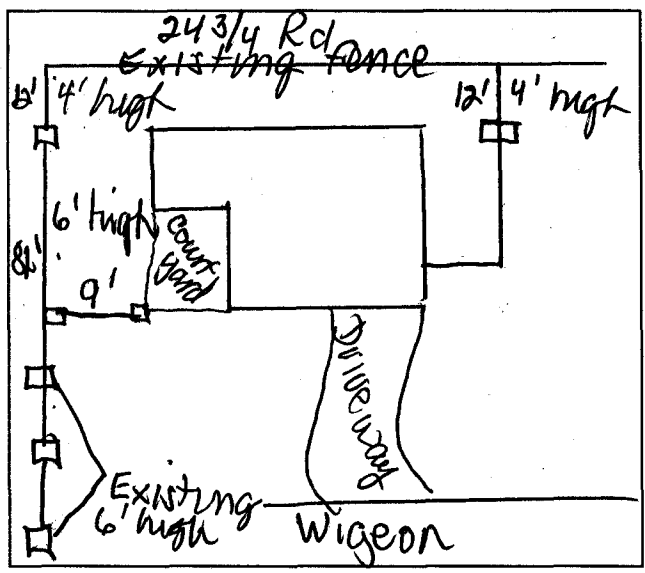 24 3/4 Rd
Existing Fence
12' 4' high
12' 4' high
6' high
Court
yard
9'
Driveway
Existing
6' high
Wigeon